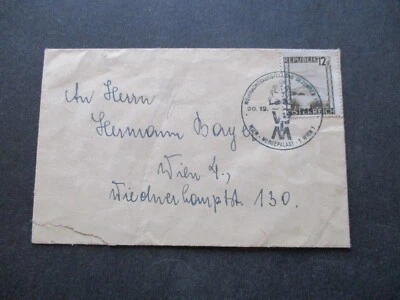 REPUBLIK 12
ÖSTERREICH
MESSEPALAST
An Herrn
Hermann Bayer
Wien 4.,
Wiednerhauptstr. 130.